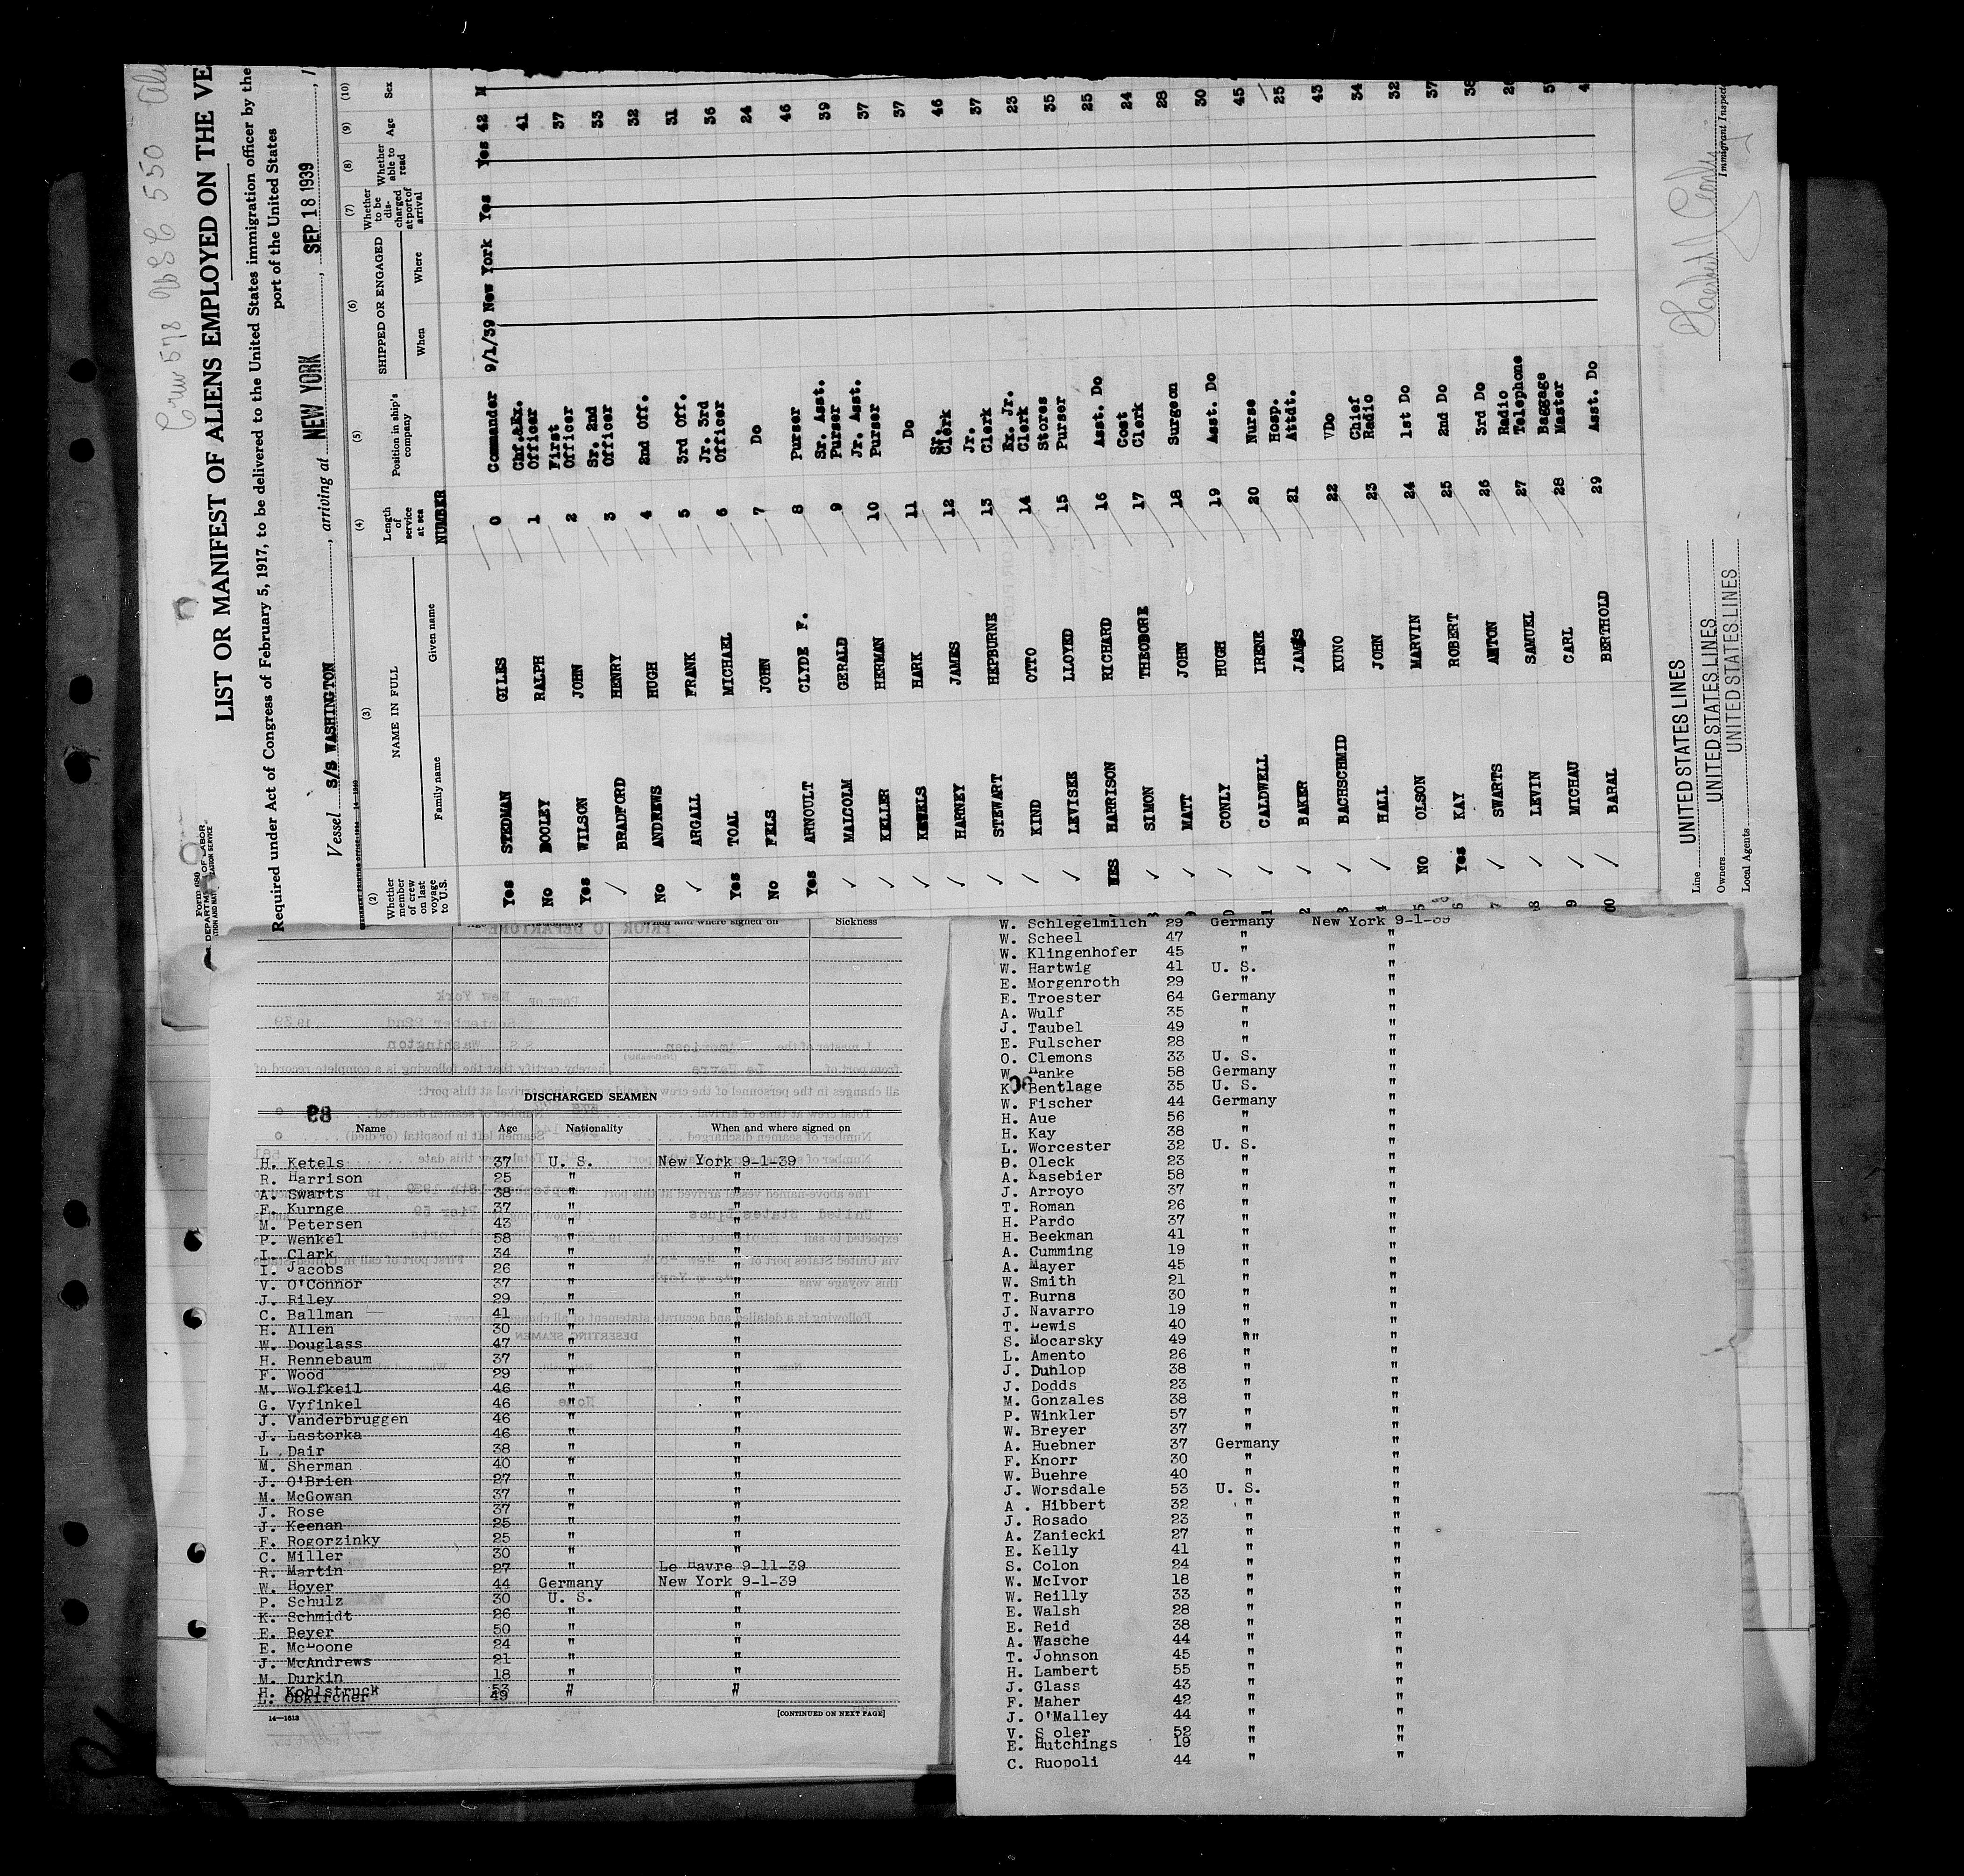 Crew 578
Form 680
LIST OR MANIFEST OF ALIENS EMPLOYED ON THE VE
Required under Act of Congress of February 5, 1917, to be delivered to the United States immigration officer by the
port of the United States
Vessel S/S WASHINGTON, arriving at NEW YORK, SEP 18 1939, 1
(2) (3) (4) (5) (6) (7) (8) (9) (10)
Whether member of crew on last voyage to U.S. NAME IN FULL Family name Given name Length of service at sea Position in ship's company SHIPPED OR ENGAGED When Where Whether to be discharged at port of arrival Whether able to read Age Sex
NUMBER
Yes STEDMAN GILES 0 Commander 9/1/39 New York Yes Yes 42 M
No DOOLEY RALPH 1 Chf.&Ex. Officer 41
Yes WILSON JOHN 2 First Officer 37
✓ BRADFORD HENRY 3 Sr. 2nd Officer 33
No ANDREWS HUGH 4 2nd Off. 32
✓ ARGALL FRANK 5 3rd Off. 31
Yes TOAL MICHAEL 6 Jr. 3rd Officer 36
No FELS JOHN 7 Do 24
Yes ARNOULT CLYDE F. 8 Purser 46
✓ MALCOLM GERALD 9 Sr. Asst. Purser 39
✓ KELLER HERMAN 10 Jr. Asst. Purser 37
✓ KETELS HARK 11 Do 37
✓ HARNEY JAMES 12 Sr. Clerk 46
✓ STEWART HEPBURNE 13 Jr. Clerk 37
✓ KIND OTTO 14 Ex. Jr. Clerk 23
✓ LEVISEE LLOYED 15 Stores Purser 35
HARRISON RICHARD 16 Asst. Do 25
✓ SIMON THEODORE 17 Cost Clerk 24
✓ MATT JOHN 18 Surgeon 28
✓ CONLY HUGH 19 Asst. Do 30
✓ CALDWELL IRENE 20 Nurse 45
✓ BAKER JAMES 21 Hosp. Attdt. 25
✓ BACHSCHMID KUNO 22 Do 43
✓ HALL JOHN 23 Chief Radio 34
NO OLSON MARVIN 24 1st Do 32
Yes KAY ROBERT 25 2nd Do 37
✓ SWARTS ANTON 26 3rd Do 38
✓ LEVIN SAMUEL 27 Radio Telephone
✓ MICHAU CARL 28 Baggage Master
✓ BARAL BERTHOLD 29 Asst. Do
Line UNITED STATES LINES
Owners UNITED STATES LINES
Local Agents UNITED STATES LINES
Immigrant Inspec
When and where signed on Sickness
DISCHARGED SEAMEN
98
Name Age Nationality When and where signed on
H. Ketels 37 U. S. New York 9-1-39
R. Harrison 25 " "
A. Swarts 38 " "
F. Kurnge 37 " "
M. Petersen 43 " "
P. Wenkel 58 " "
I. Clark 34 " "
I. Jacobs 26 " "
V. O'Connor 37 " "
J. Riley 29 " "
C. Ballman 41 " "
H. Allen 30 " "
W. Douglass 47 " "
H. Rennebaum 37 " "
F. Wood 29 " "
M. Wolfkeil 46 " "
G. Vyfinkel 46 " "
J. Vanderbruggen 46 " "
J. Lastorka 46 " "
L. Dair 38 " "
M. Sherman 40 " "
J. O'Brien 27 " "
M. McGowan 37 " "
J. Rose 37 " "
J. Keenan 25 " "
F. Rogorzinky 25 " "
C. Miller 30 " "
R. Martin 27 " Le Havre 9-11-39
W. Hoyer 44 Germany New York 9-1-39
P. Schulz 30 U. S. "
K. Schmidt 26 " "
E. Beyer 50 " "
E. McLoone 24 " "
J. McAndrews 21 " "
M. Durkin 18 " "
H. Kohlstruck 53 " "
L. Obkircher 49
14—1613 [CONTINUED ON NEXT PAGE]
W. Schlegelmilch 29 Germany New York 9-1-39
W. Scheel 47 " "
W. Klingenhofer 45 " "
W. Hartwig 41 U. S. "
E. Morgenroth 29 " "
E. Troester 64 Germany "
A. Wulf 35 " "
J. Taubel 49 " "
E. Fulscher 28 " "
O. Clemons 33 U. S. "
W. Panke 58 Germany "
K. Bentlage 35 U. S. "
W. Fischer 44 Germany "
H. Aue 56 " "
H. Kay 38 " "
L. Worcester 32 U. S. "
D. Oleck 23 " "
A. Kasebier 58 " "
J. Arroyo 37 " "
T. Roman 26 " "
H. Pardo 37 " "
H. Beekman 41 " "
A. Cumming 19 " "
A. Mayer 45 " "
W. Smith 21 " "
T. Burns 30 " "
J. Navarro 19 " "
T. Lewis 40 " "
S. Mocarsky 49 "" "
L. Amento 26 " "
J. Dunlop 38 " "
J. Dodds 23 " "
M. Gonzales 38 " "
P. Winkler 57 " "
W. Breyer 37 " "
A. Huebner 37 Germany "
F. Knorr 30 " "
W. Buehre 40 " "
J. Worsdale 53 U. S. "
A . Hibbert 32 " "
J. Rosado 23 " "
A. Zaniecki 27 " "
E. Kelly 41 " "
S. Colon 24 " "
W. McIvor 18 " "
W. Reilly 33 " "
E. Walsh 28 " "
E. Reid 38 " "
A. Wasche 44 " "
T. Johnson 45 " "
H. Lambert 55 " "
J. Glass 43 " "
F. Maher 42 " "
J. O'Malley 44 " "
V. S oler 52 " "
E. Hutchings 19 " "
C. Ruopoli 44 " "